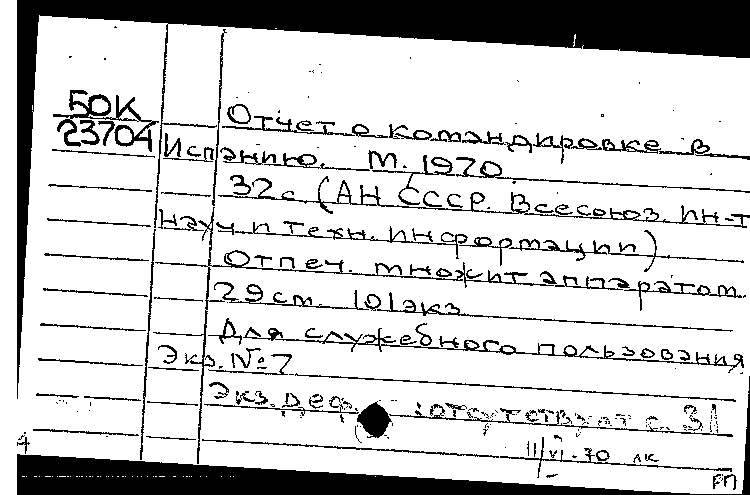 БОК
23704
Отчет о командировке в
Испанию. М., 1970.
32с. (АН СССР. Всесоюз. ин-т
науч и техн. информации).
Отпеч. множит аппаратом.
29см. 101экз
Для служебного пользования
Экз. №7
Экз. деф : отсутствует с. 31
11/VI-70 лк
РП
4